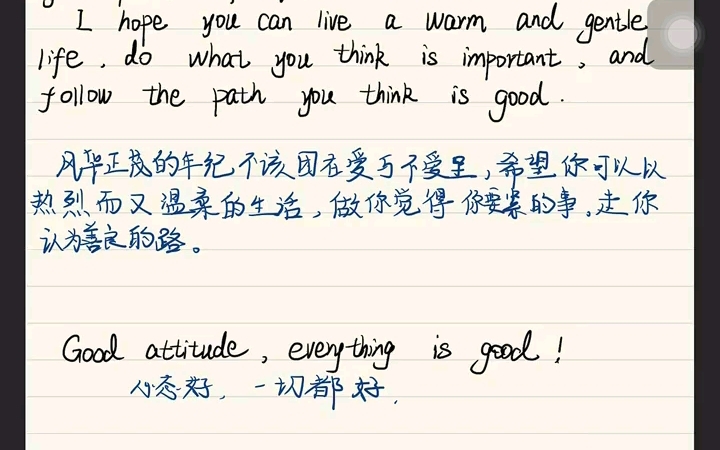 I hope you can live a warm and gentle
life, do what you think is important, and
follow the path you think is good.
风华正茂的年纪不该困在爱与不爱里,希望你可以以
热烈而又温柔的生活,做你觉得你要紧的事,走你
认为善良的路。
Good attitude, everything is good!
心态好,一切都好,